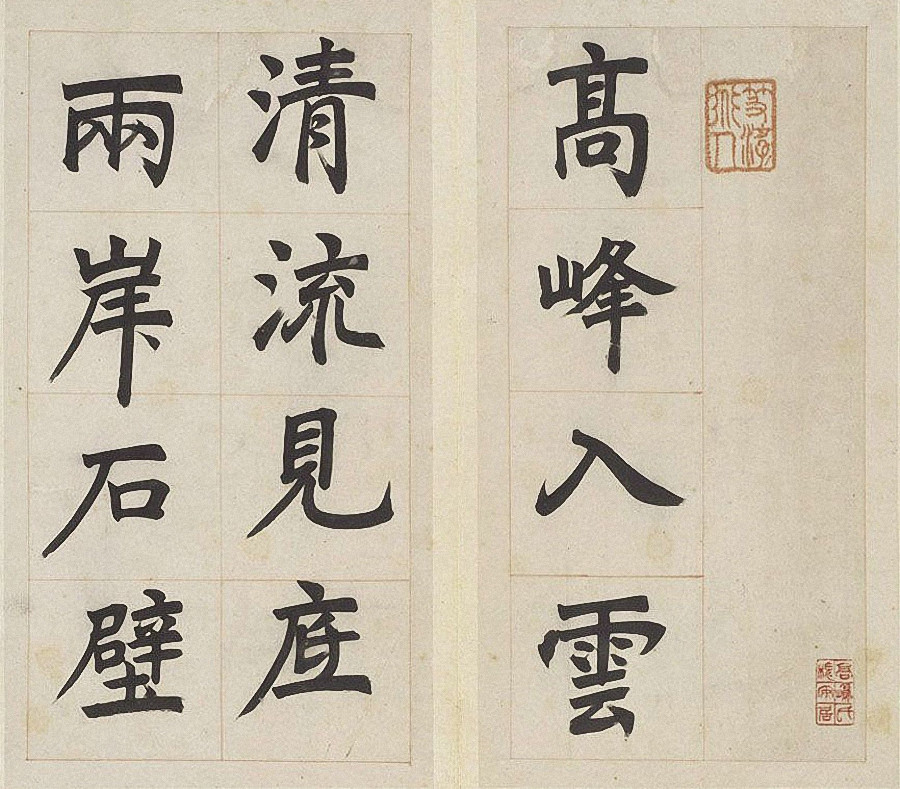 高峰入雲
清流見底
兩岸石壁